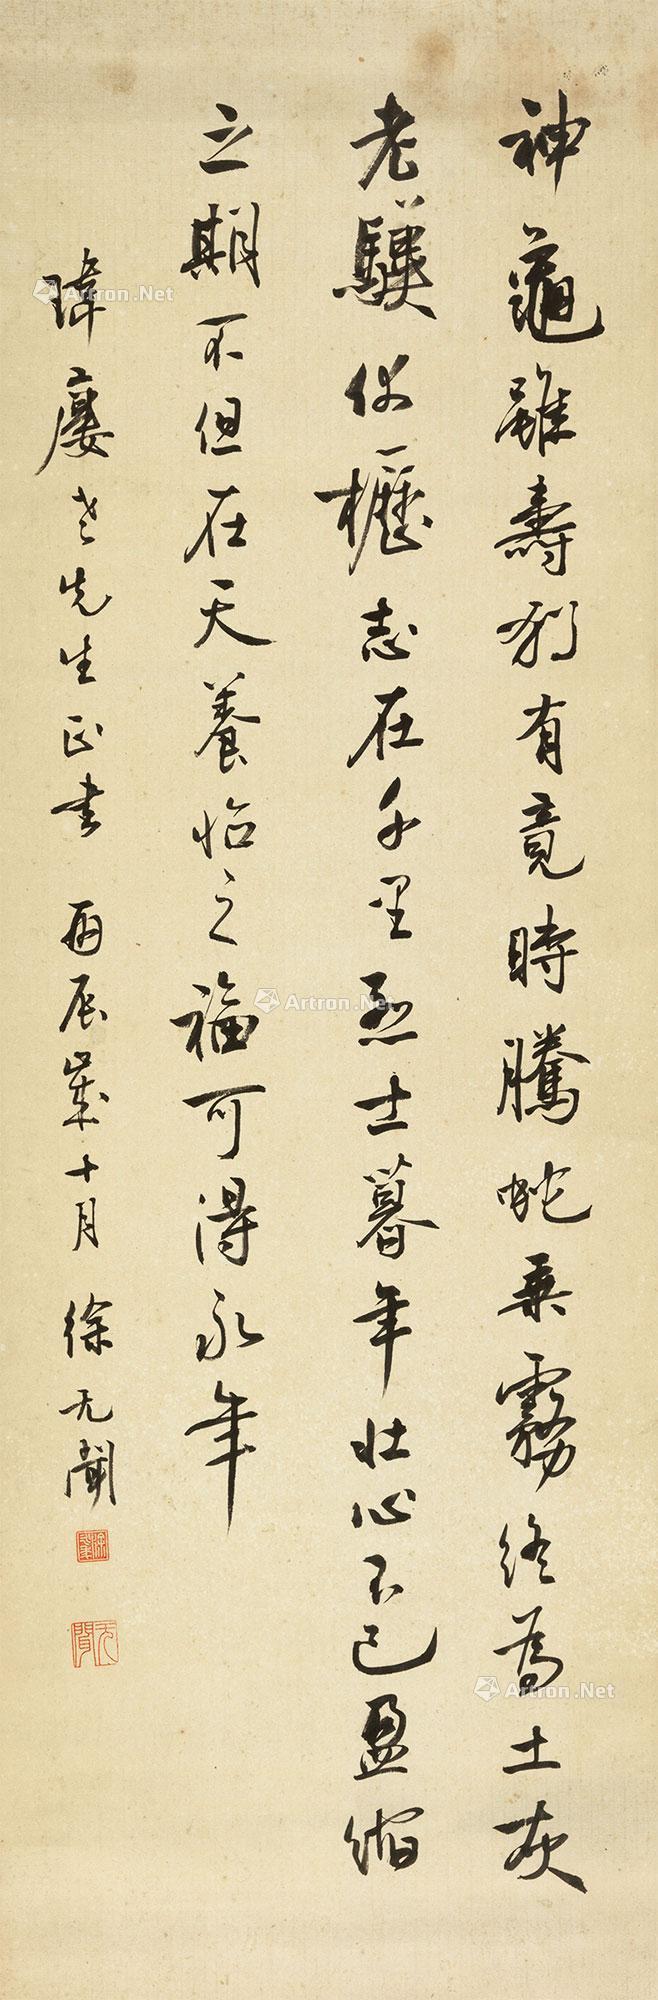 神龜雖壽猶有竟時騰蛇乘霧終為土灰
老驥伏櫪志在千里烈士暮年壯心不已盈縮
之期不但在天養怡之福可得永年
瑋廔老先生正書 丙辰歲十月 徐无聞
无聞
Artron.Net
Artron.Net
Artron.Net
Artron.Net